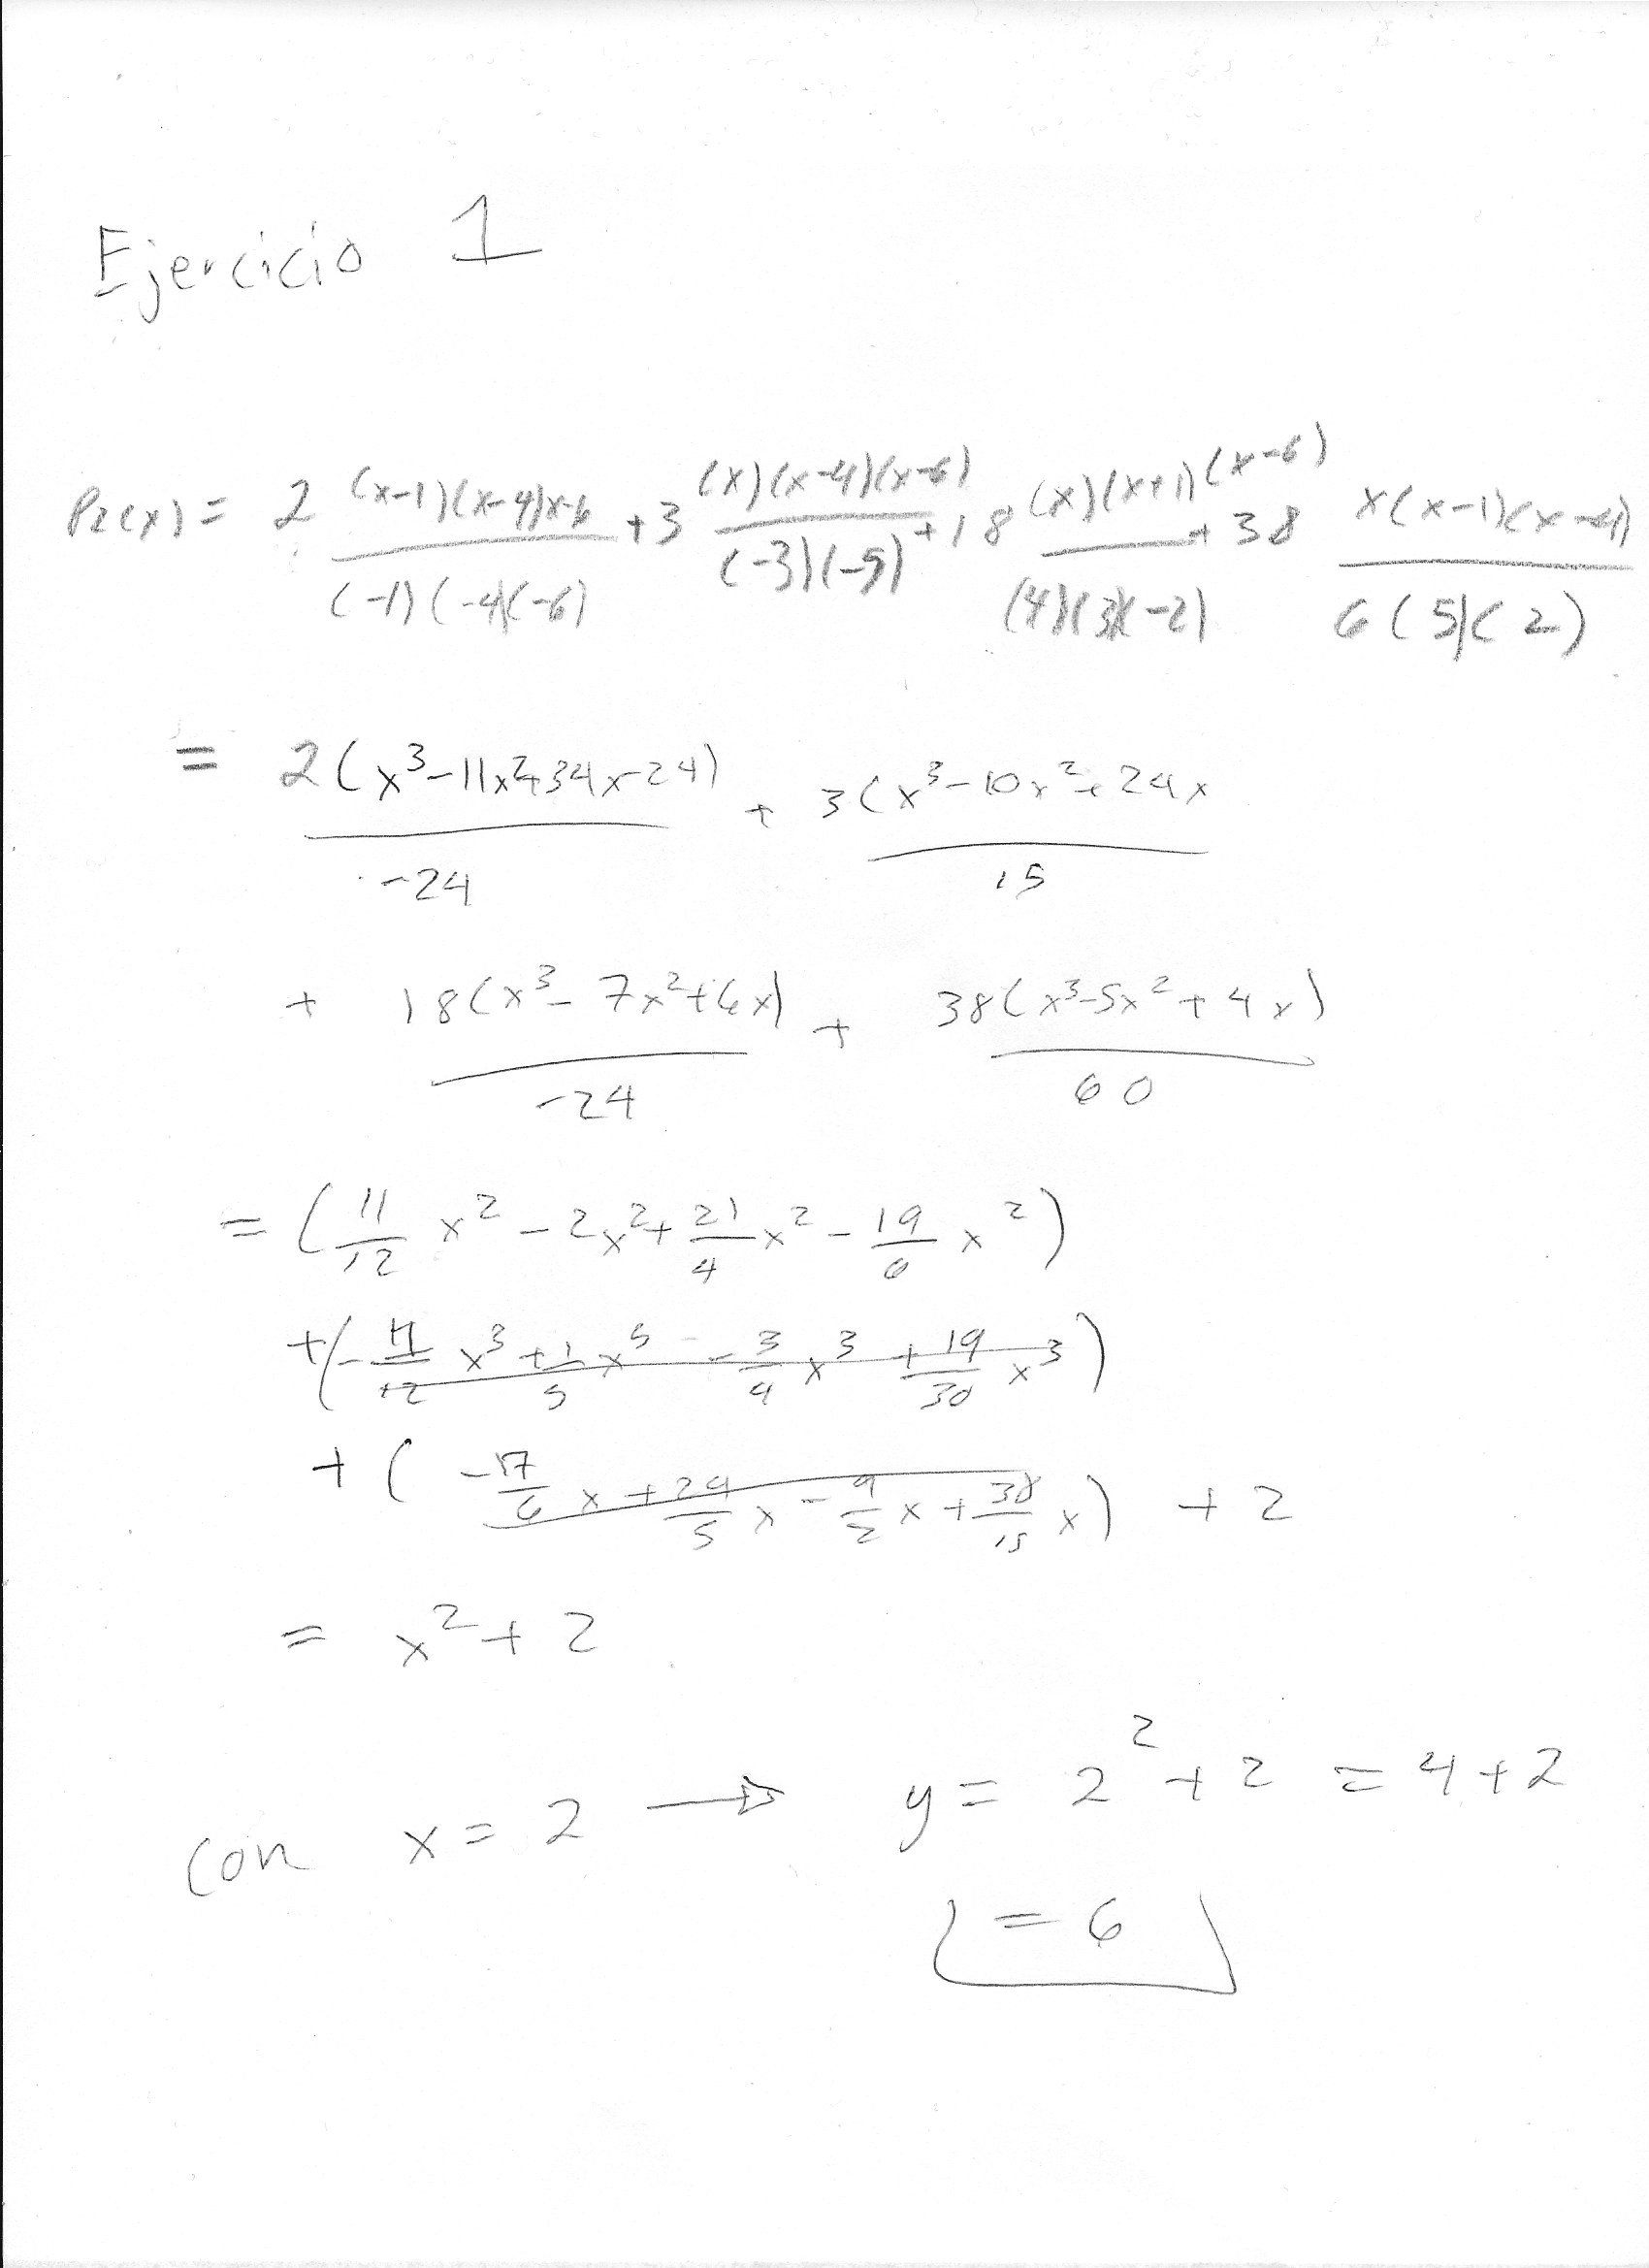 Ejercicio 1
P2(x) = 2 (x-1)(x-4)x-6 / (-1)(-4)(-6) + 3 (x)(x-4)(x-6) / (-3)(-5) + 18 (x)(x+1)(x-6) / (4)(3)(-2) + 38 x(x-1)(x-4) / 6(5)(2)
= 2(x³-11x²+34x-24) / -24 + 3(x³-10x²+24x / 15
+ 18(x³-7x²+6x) / -24 + 38(x³-5x²+4x) / 60
= (11/12 x² - 2x² + 21/4 x² - 19/6 x²)
+(- 1/12 x³ + 1/5 x³ - 3/4 x³ + 19/30 x³)
+ ( -17/6 x + 24/5 x - 9/2 x + 38/15 x) + 2
= x² + 2
con x = 2 → y = 2² + 2 = 4 + 2
= 6